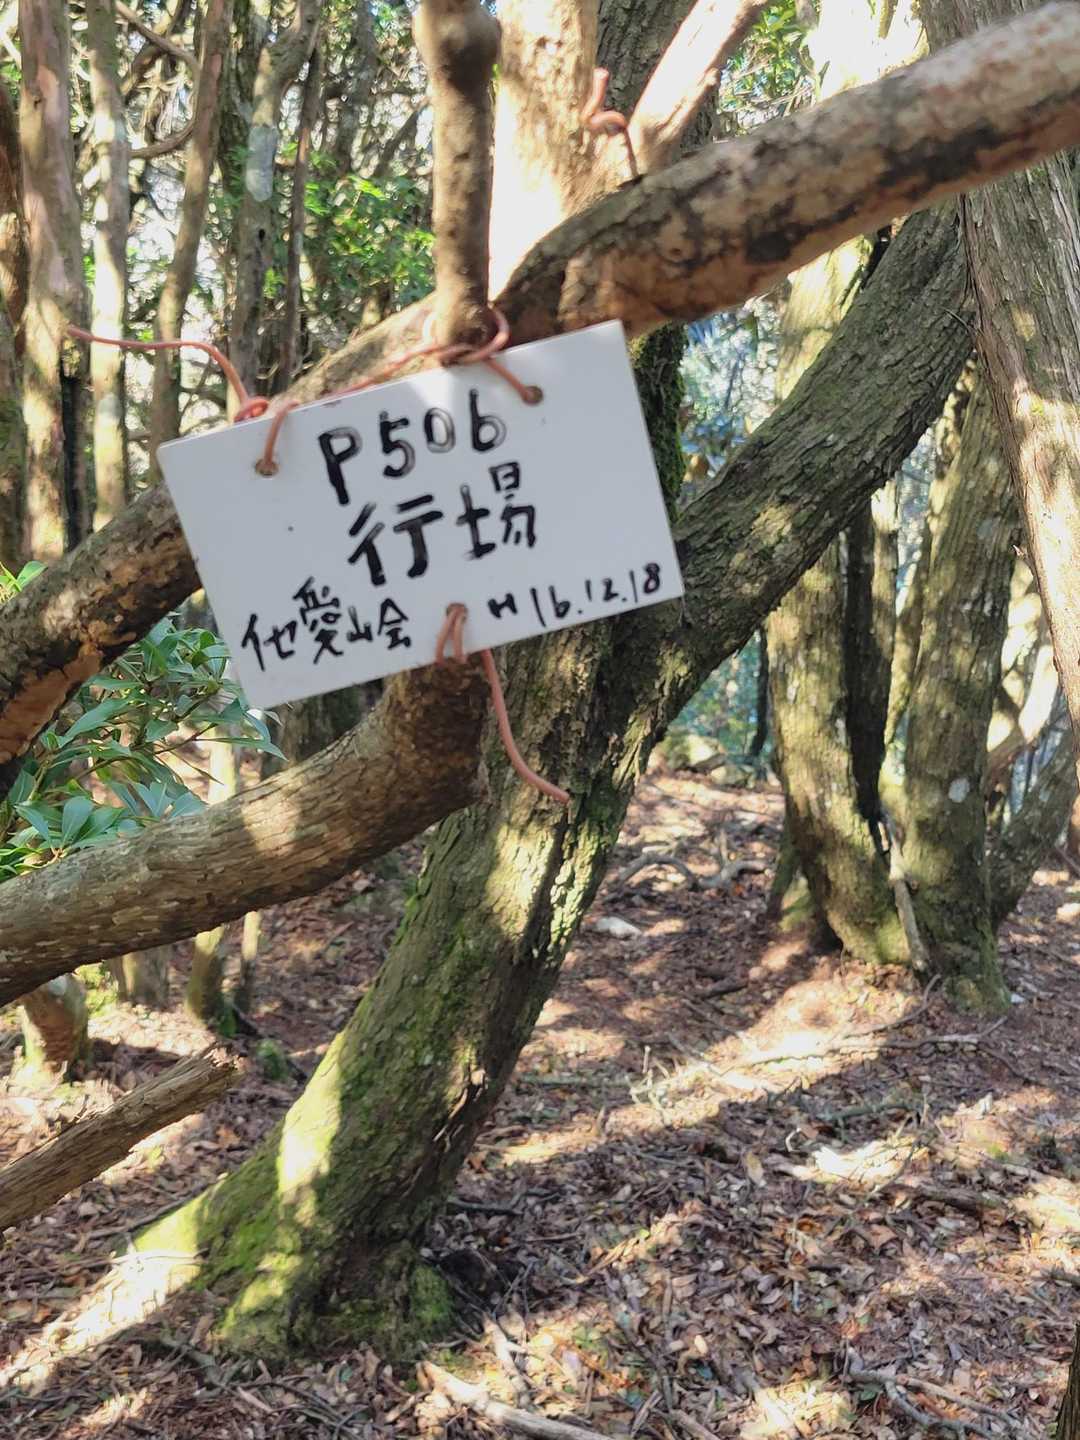 P506
行場
他愛山会 H16.12.18